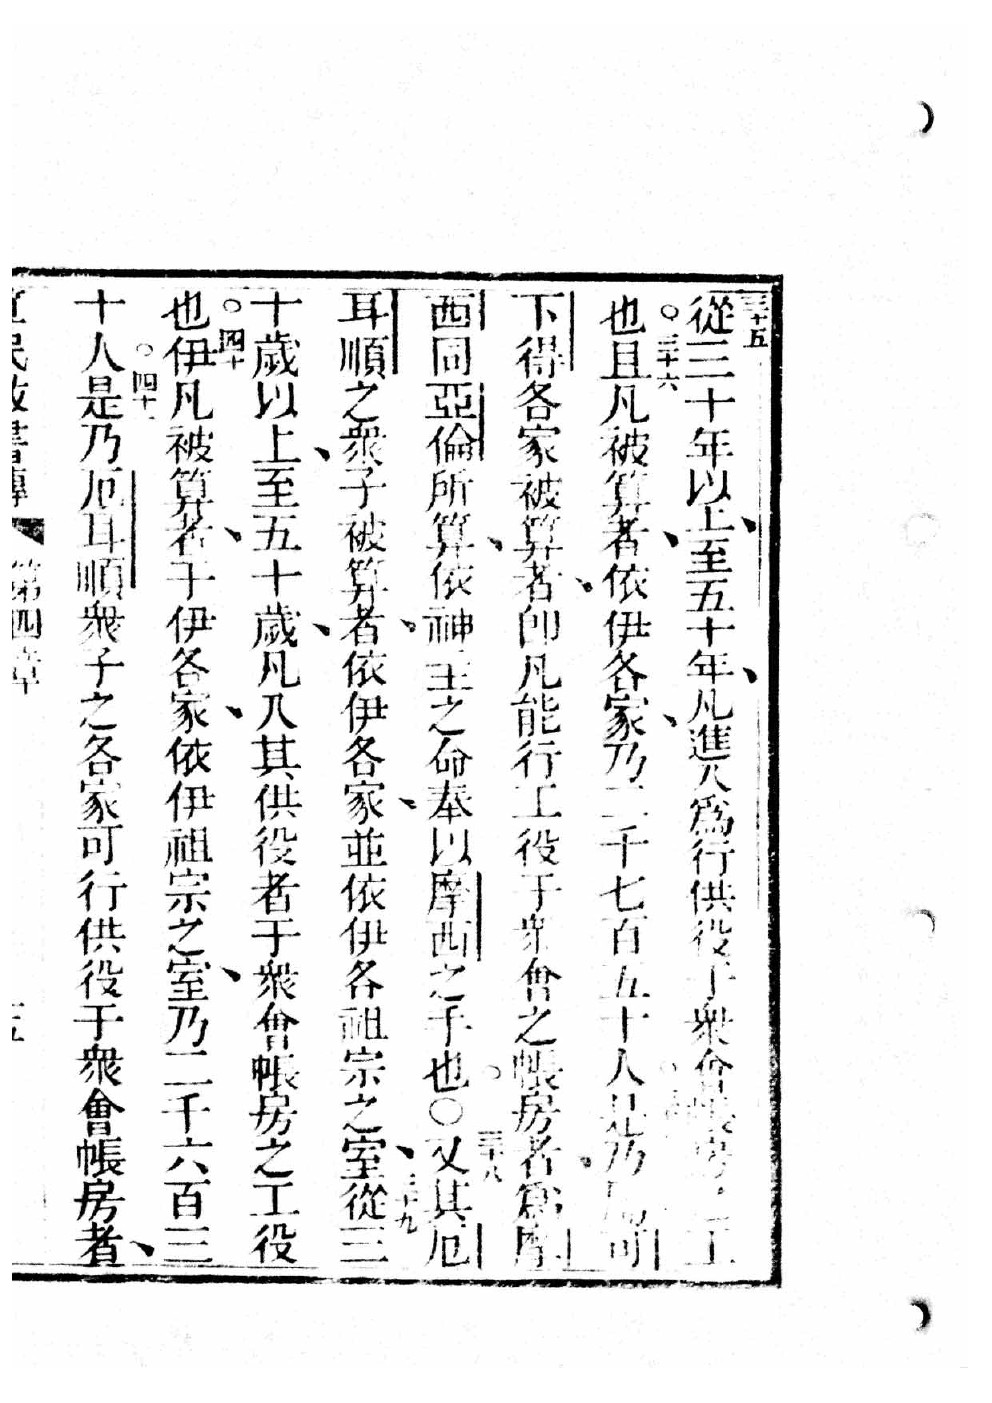 三十五
從三十年以上至五十年凡進入為行供役于衆會帳房之工
三十六
也且凡被算者依伊各家乃二千七百五十人是乃厄可
下得各家被算者卽凡能行工役于衆會之帳房者為摩
西同亞倫所算依神主之命奉以摩西之手也〇又其厄
三十八
耳順之衆子被算者依伊各家並依伊各祖宗之室從三
三十九
十歲以上至五十歲凡入其供役者于衆會帳房之工役
四十
也伊凡被算者于伊各家依伊祖宗之室乃二千六百三
四十一
十人是乃厄耳順衆子之各家可行供役于衆會帳房者
民數書傳 第四章 五